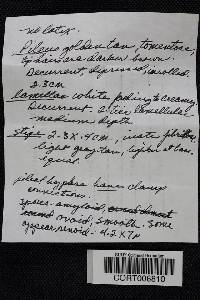 no latex
Pileus golden tan, tomentose,
darker brown.
Decurrent, depressed, enrolled.
2-3cm
Lamellae white fading to creamy
Decurrent. 2 tier lamellulae-
medium depth
stipe 2-3 x .4cm,
light gray tan, lighter at base.
equal.
pileal hyphae have clamp
connections.
spores - amyloid,
round ovoid, smooth. Some
appear 4-2 x 7µ
CORT006810